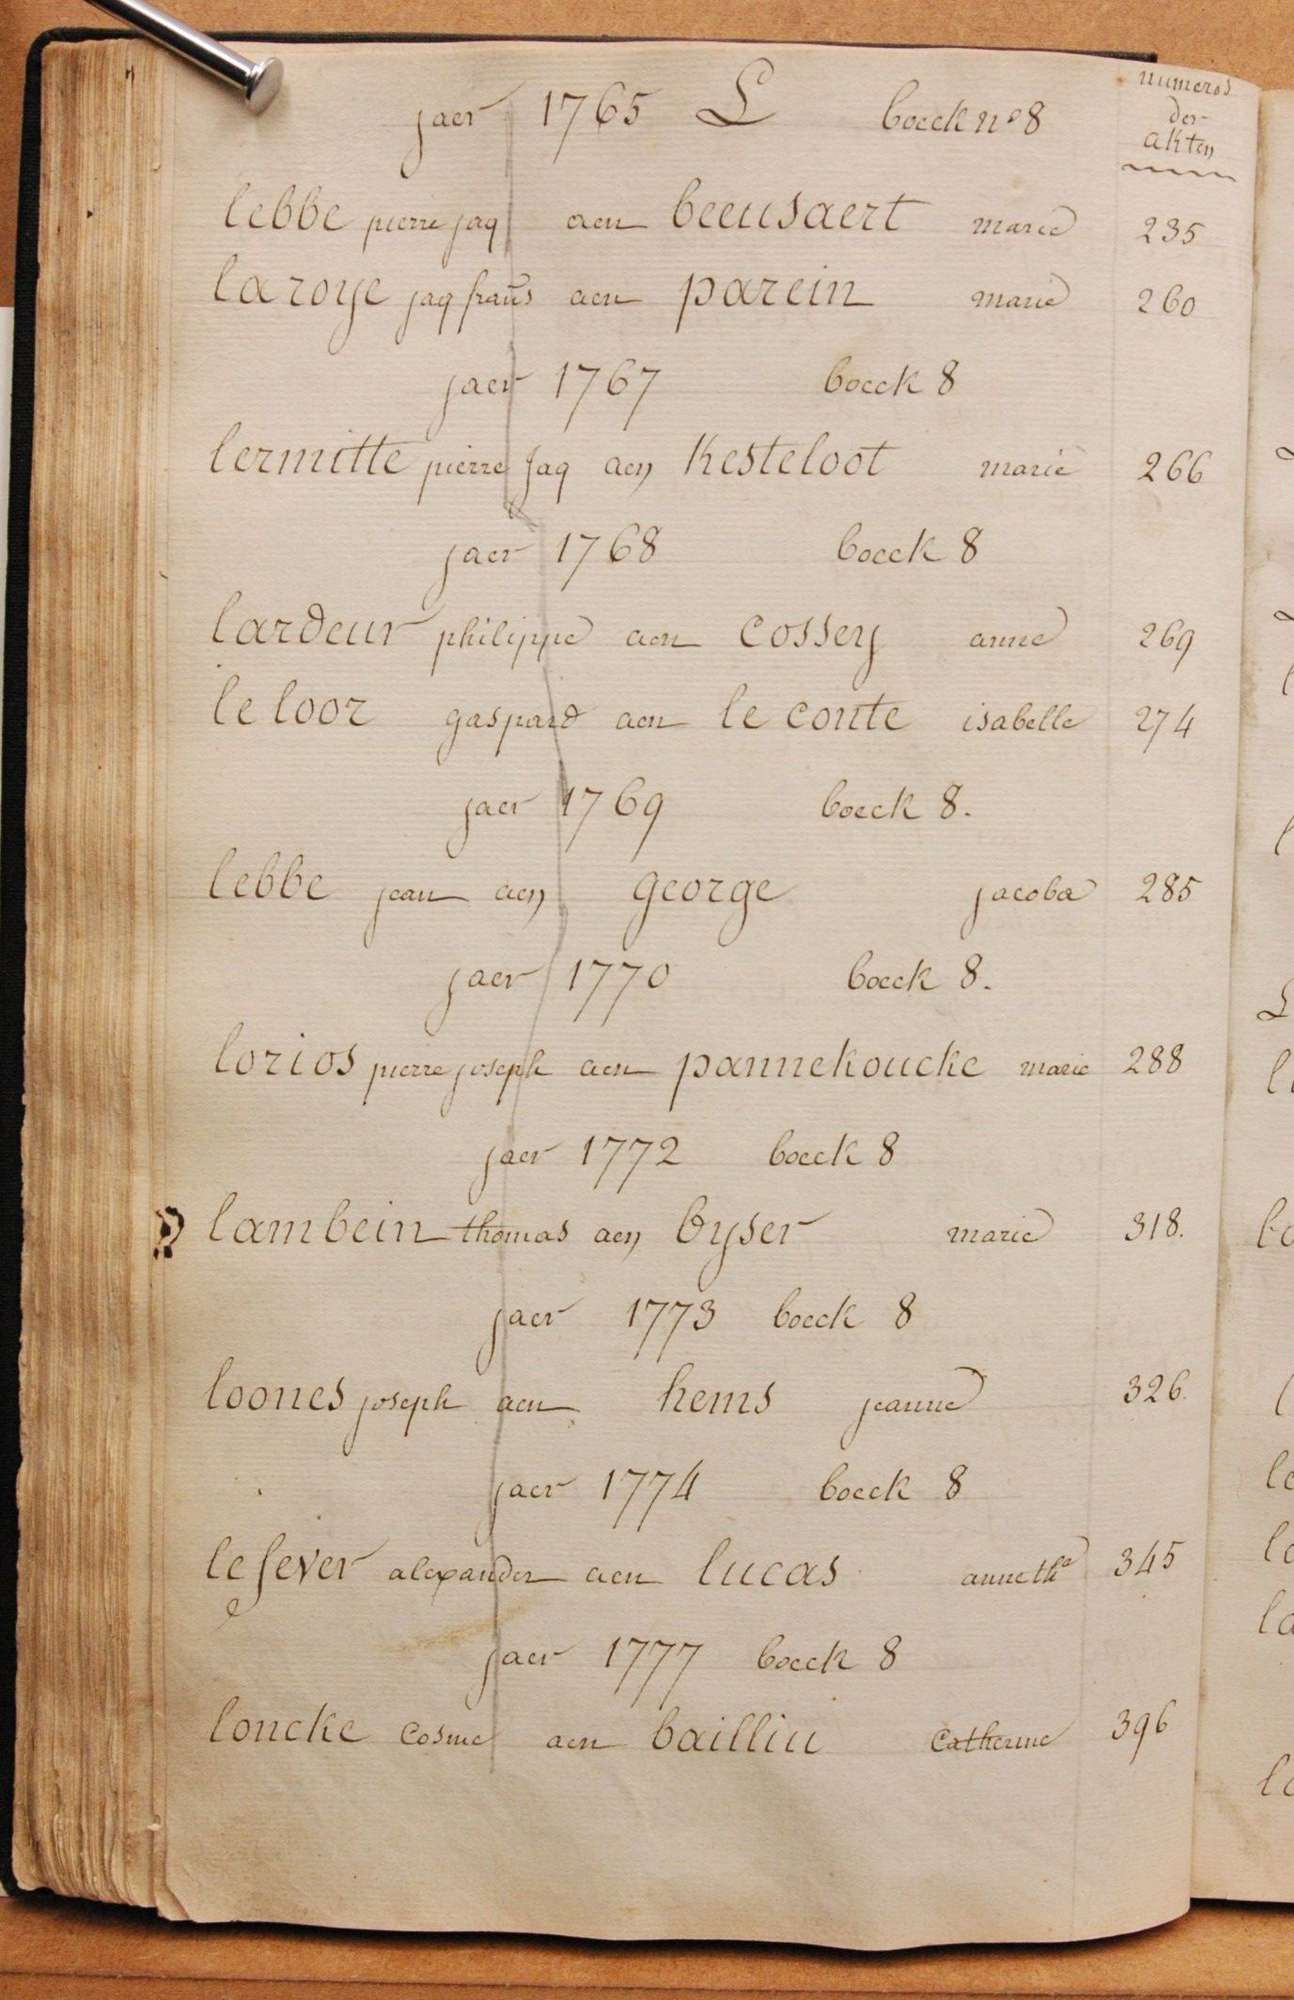 jaer 1765 L boeck nº 8
numeros
der
akten
lebbe pierre jaq aen beeusaert marie 235
laroye jaq frans aen parein marie 260
jaer 1767 boeck 8
lermitte pierre jaq aen Kesteloot marie 266
jaer 1768 boeck 8
lardeur philippe aen cossey anne 269
le loor gaspard aen le conte isabelle 274
jaer 1769 boeck 8.
lebbe jean aen george jacoba 285
jaer 1770 boeck 8.
lorios pierre joseph aen pannekoucke marie 288
jaer 1772 boeck 8
lambein thomas aen Gyser marie 318.
jaer 1773 boeck 8
loones joseph aen hems jeanne 326.
jaer 1774 boeck 8
lefever alexander aen lucas anne the 345
jaer 1777 boeck 8
loncke cosme aen bailliu Catherine 396